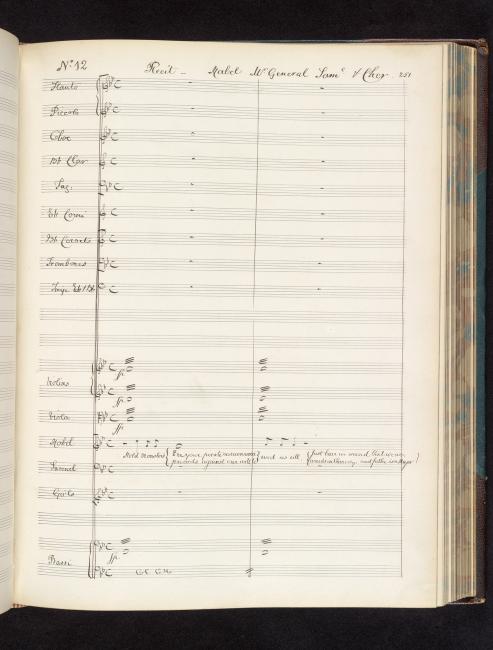 No 12 Recit - Mabel Mr General Saml & Chor. 251
Flauto
Piccolo
Oboe
Bb Clar
Fag.
Eb Corni
Bb Cornets
Trombones
Violins
Viola
Mabel
Hold monsters Ere your pirate caravanserai and us all Just bear in mind that we are
proceeds against our will to wards in chancery, and father is a Major
Samuel
Girls
Bassi